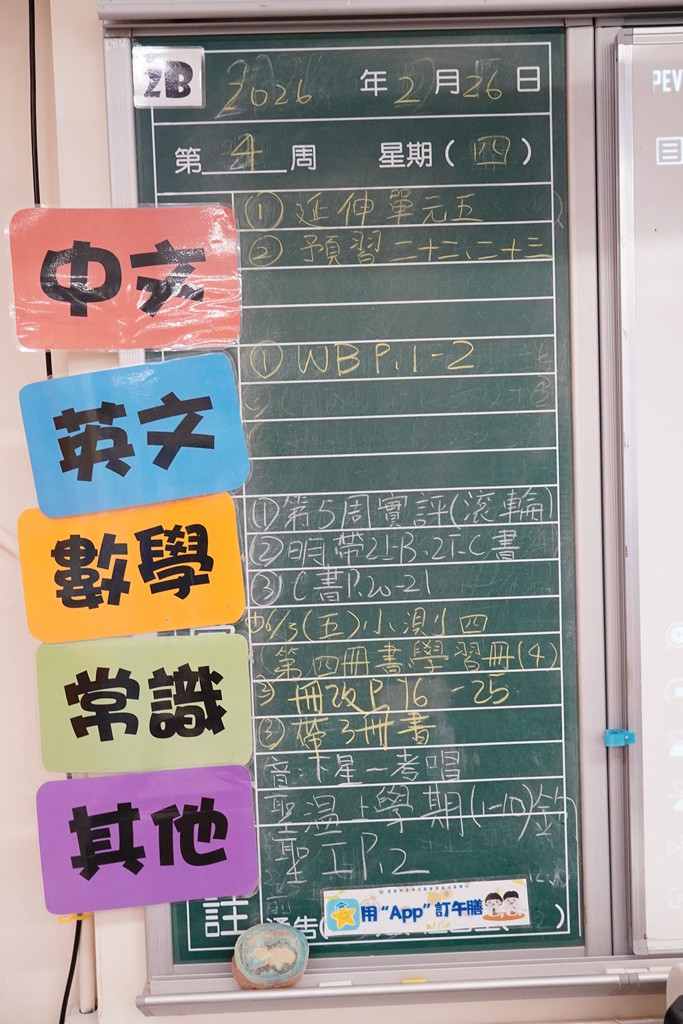 2B
2026 年 2 月 26 日
第 4 周 星期 ( 四 )
中文
① 延伸單元五
② 預習二十二、二十三
英文
① WB P.1-2
數學
① 第5周實評(滾輪)
② 明帶2上B、2下C書
③ C書P.20-21
常識
6/3(五)小測四
第四冊書學習冊(4)
冊改P.16-25
③ 帶3冊書
其他
音:下星一考唱
聖溫上學期(1-10)
聖工P.2
註
通告(
用 "App" 訂午膳
)
PEV